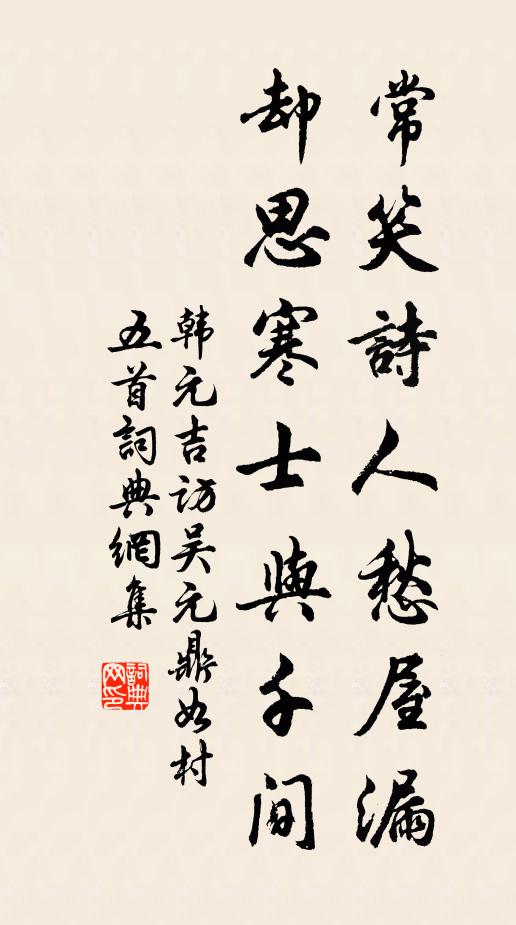 常笑詩人愁屋漏
却思寒士與千间
韩元吉访吴元鼎如村
五首詞典網集
詞典
网印